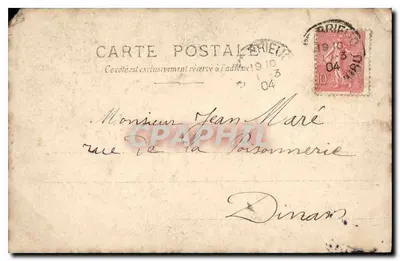 CARTE POSTALE
Ce côté est exclusivement réservé à l'adresse
BRIEUC
19 10
1 3
04
BRIEUC
19 10
3
04
Monsieur Jean Maré
rue de la Poissonnerie
Dinan
PRCartes